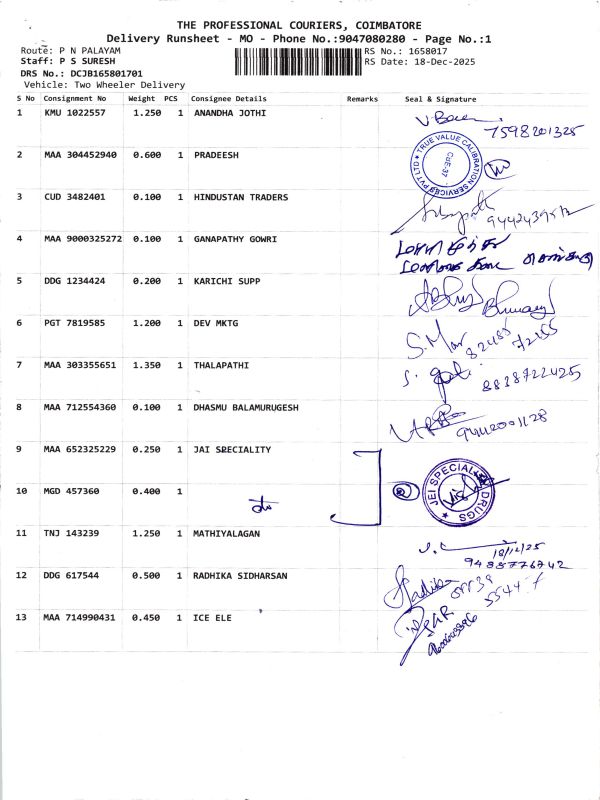 THE PROFESSIONAL COURIERS, COIMBATORE
Delivery Runsheet - MO - Phone No.:9047080280 - Page No.:1
Route: P N PALAYAM RS No.: 1658017
Staff: P S SURESH RS Date: 18-Dec-2025
DRS No.: DCJB165801701
Vehicle: Two Wheeler Delivery
S No Consignment No Weight PCS Consignee Details Remarks Seal & Signature
1 KMU 1022557 1.250 1 ANANDHA JOTHI
7598201325
2 MAA 304452940 0.600 1 PRADEESH
TRUE VALUE CALIBRATION SERVICES PVT LTD ★
CBE-37
3 CUD 3482401 0.100 1 HINDUSTAN TRADERS
4 MAA 9000325272 0.100 1 GANAPATHY GOWRI
5 DDG 1234424 0.200 1 KARICHI SUPP
6 PGT 7819585 1.200 1 DEV MKTG
7 MAA 303355651 1.350 1 THALAPATHI
8838722425
8 MAA 712554360 0.100 1 DHASMU BALAMURUGESH
9 MAA 652325229 0.250 1 JAI SPECIALITY
10 MGD 457360 0.400 1
2
JEI SPECIALITY DRUGS ★
11 TNJ 143239 1.250 1 MATHIYALAGAN
18/12/25
9488776742
12 DDG 617544 0.500 1 RADHIKA SIDHARSAN
Radhika
13 MAA 714990431 0.450 1 ICE ELE